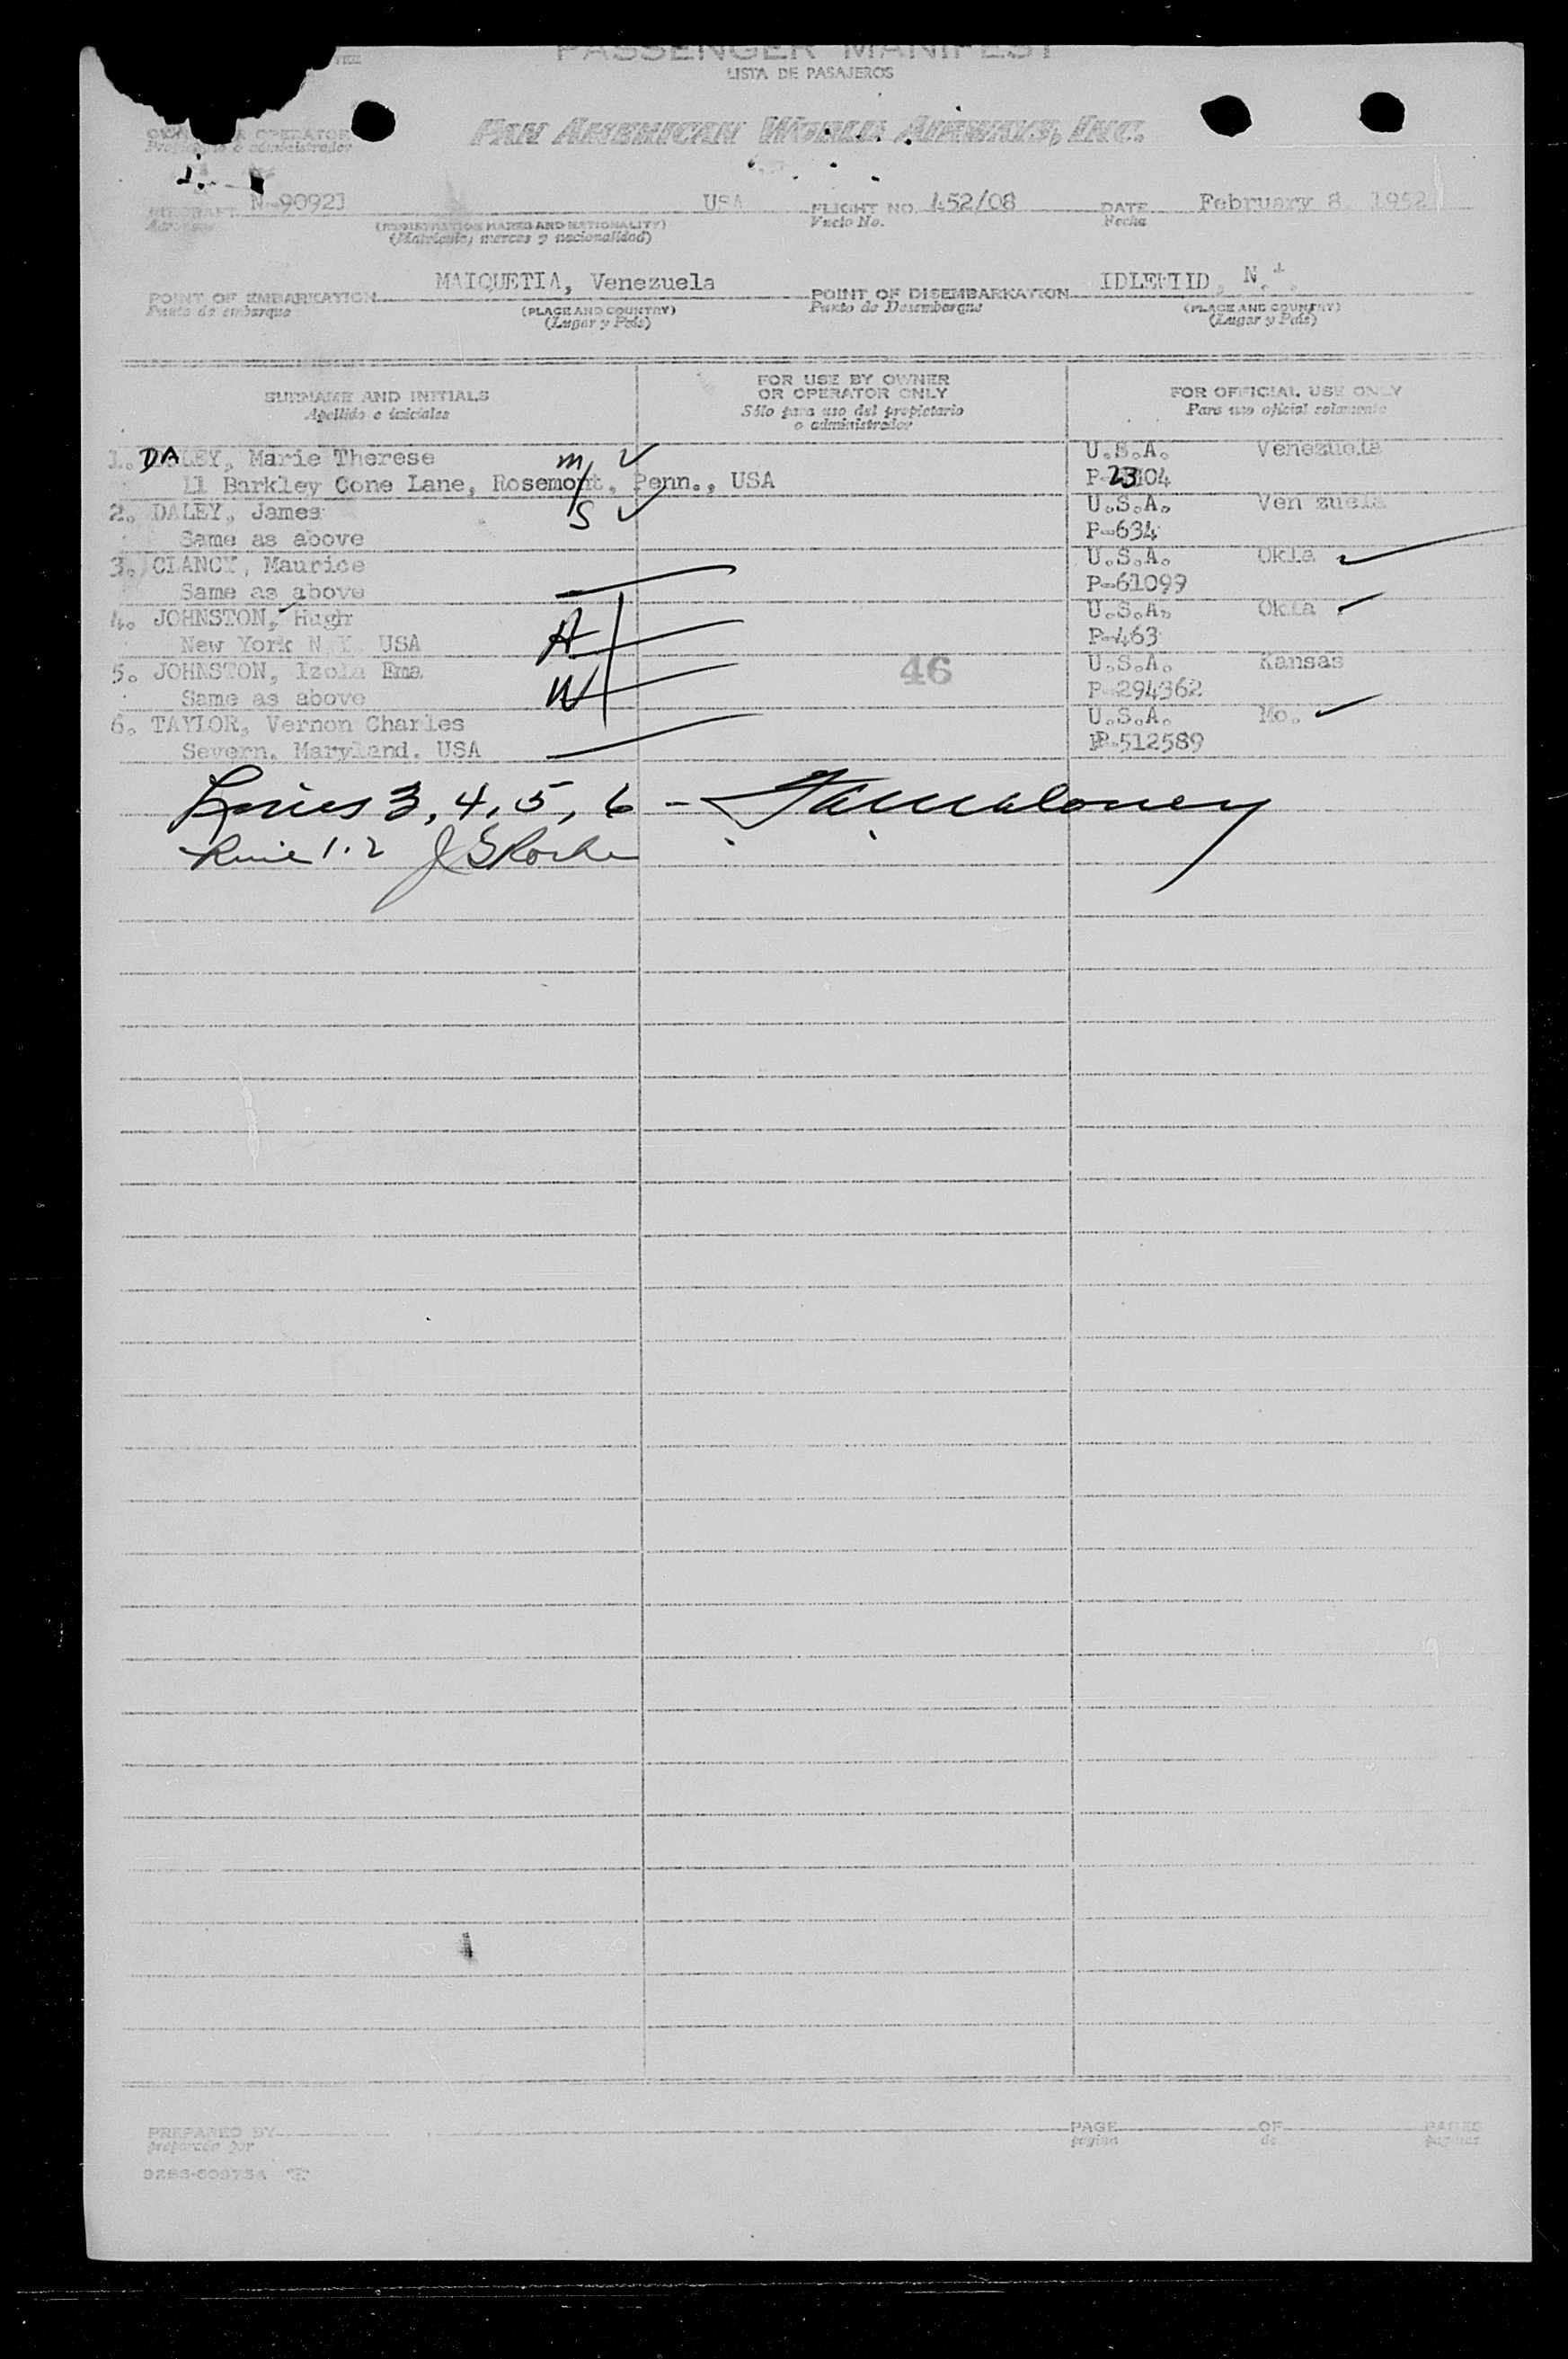 PASSENGER MANIFEST
LISTA DE PASAJEROS
OPERATOR
administrador
PAN AMERICAN WORLD AIRWAYS, INC.
AIRCRAFT N-9092J USA FLIGHT NO. 452/08 DATE February 8, 1952
(REGISTRATION MARKS AND NATIONALITY) Vuelo No. Fecha
(Matrícula, marcas y nacionalidad)
POINT OF EMBARKATION MAIQUETIA, Venezuela POINT OF DISEMBARKATION N.
Punto de embarque (PLACE AND COUNTRY) Punto de Desembarque (PLACE AND COUNTRY)
(Lugar y País) (Lugar y País)
SURNAME AND INITIALS FOR USE BY OWNER OR OPERATOR ONLY FOR OFFICIAL USE ONLY
Apellido e iniciales Sólo para uso del propietario o administrador Para uso oficial solamente
1. DALEY, Marie Therese m ✓ U.S.A. Venezuela
11 Barkley Cone Lane, Rosemont, Penn., USA P-23104
2. DALEY, James S ✓ U.S.A. Ven zuela
Same as above P-634
3. CLANCY, Maurice U.S.A. Okla ✓
Same as above P-61099
4. JOHNSTON, Hugh A U.S.A. Okla ✓
New York N.Y. USA P-463
5. JOHNSTON, Izola Ema W 46 U.S.A. Kansas
Same as above P-294362
6. TAYLOR, Vernon Charles U.S.A. Mo. ✓
Severn, Maryland, USA P-512589
Lines 3, 4, 5, 6 -
Line 1.2 J S Roche
PREPARED BY PAGE OF PAGES
preparado por página de páginas